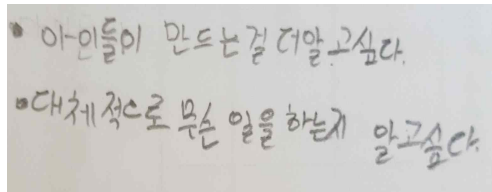 • 아인들이 만드는걸 더알고싶다.
• 대체적으로 무슨 일을 하는지 알고싶다.